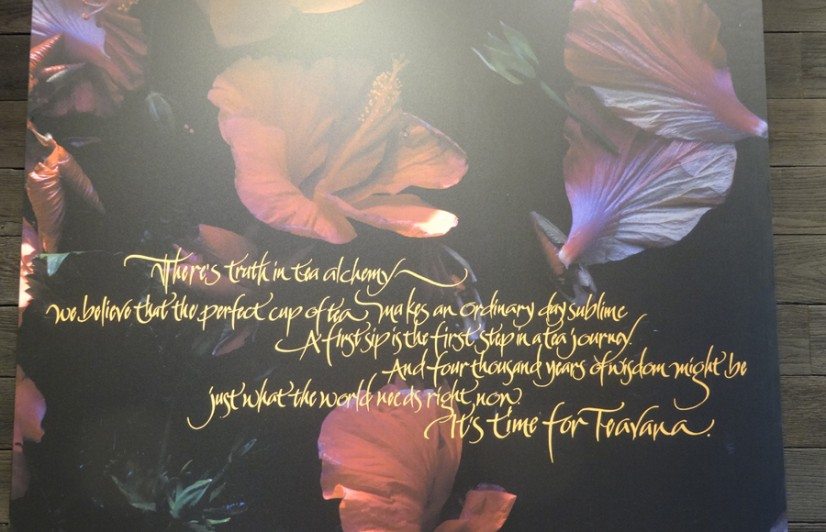 There's truth in tea alchemy
we believe that the perfect cup of tea makes an ordinary day sublime
A first sip is the first step in a tea journey.
And four thousand years of wisdom might be
just what the world needs right now.
It's time for Teavana.